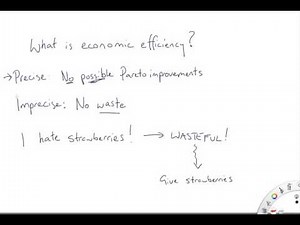 What is economic efficiency?
→ Precise: No possible Pareto improvements
Imprecise: No waste
I hate strawberries! → WASTEFUL!
Give strawberries